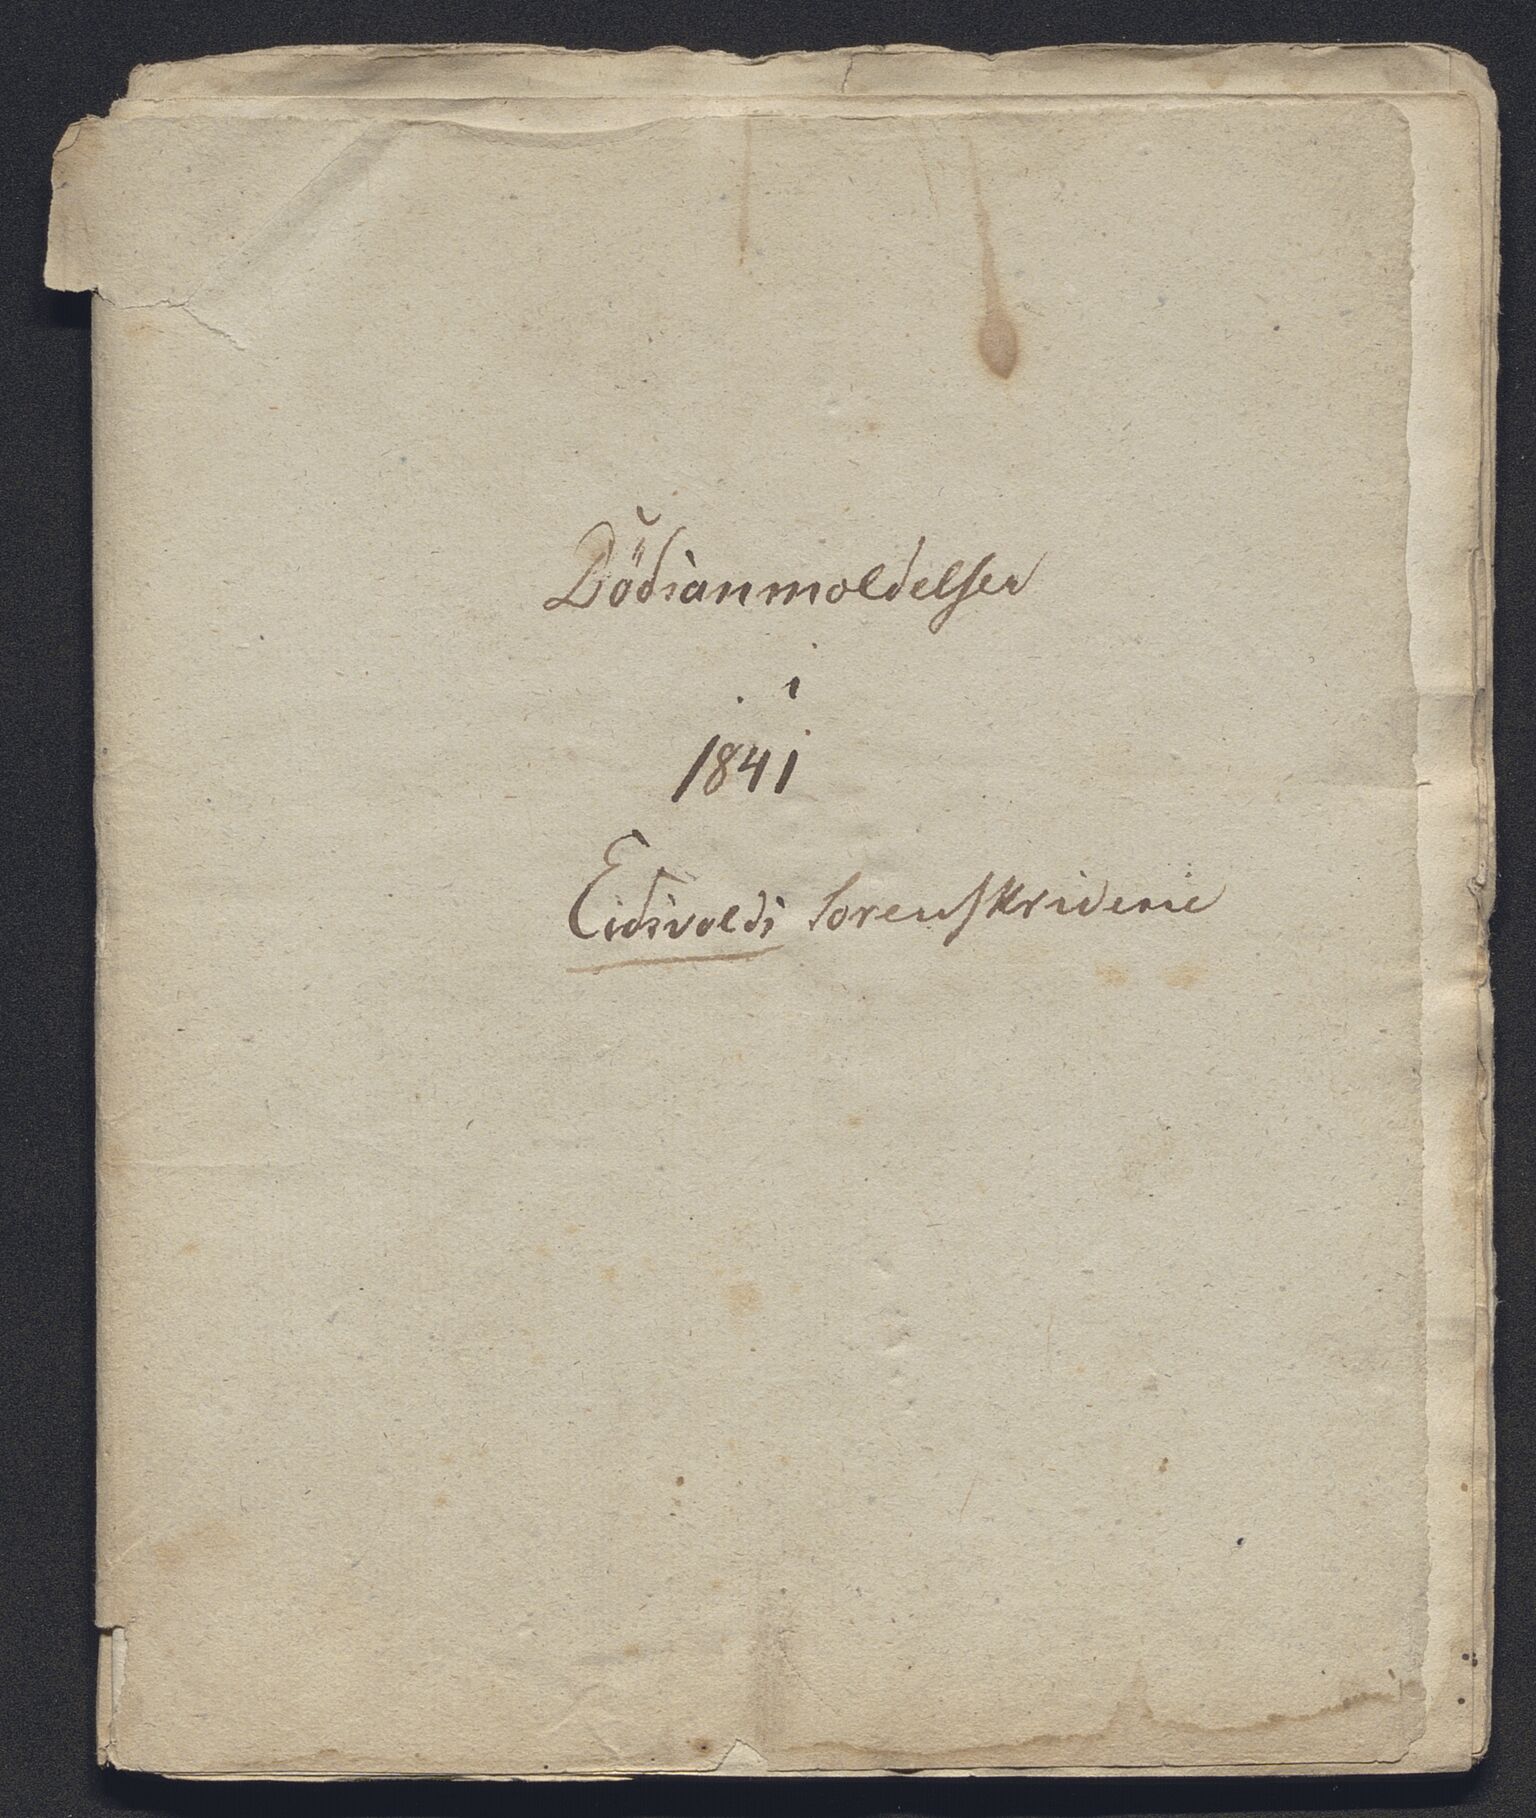 Dödsanmeldelser
i
1841
Eidsvolds Sorenskriverie